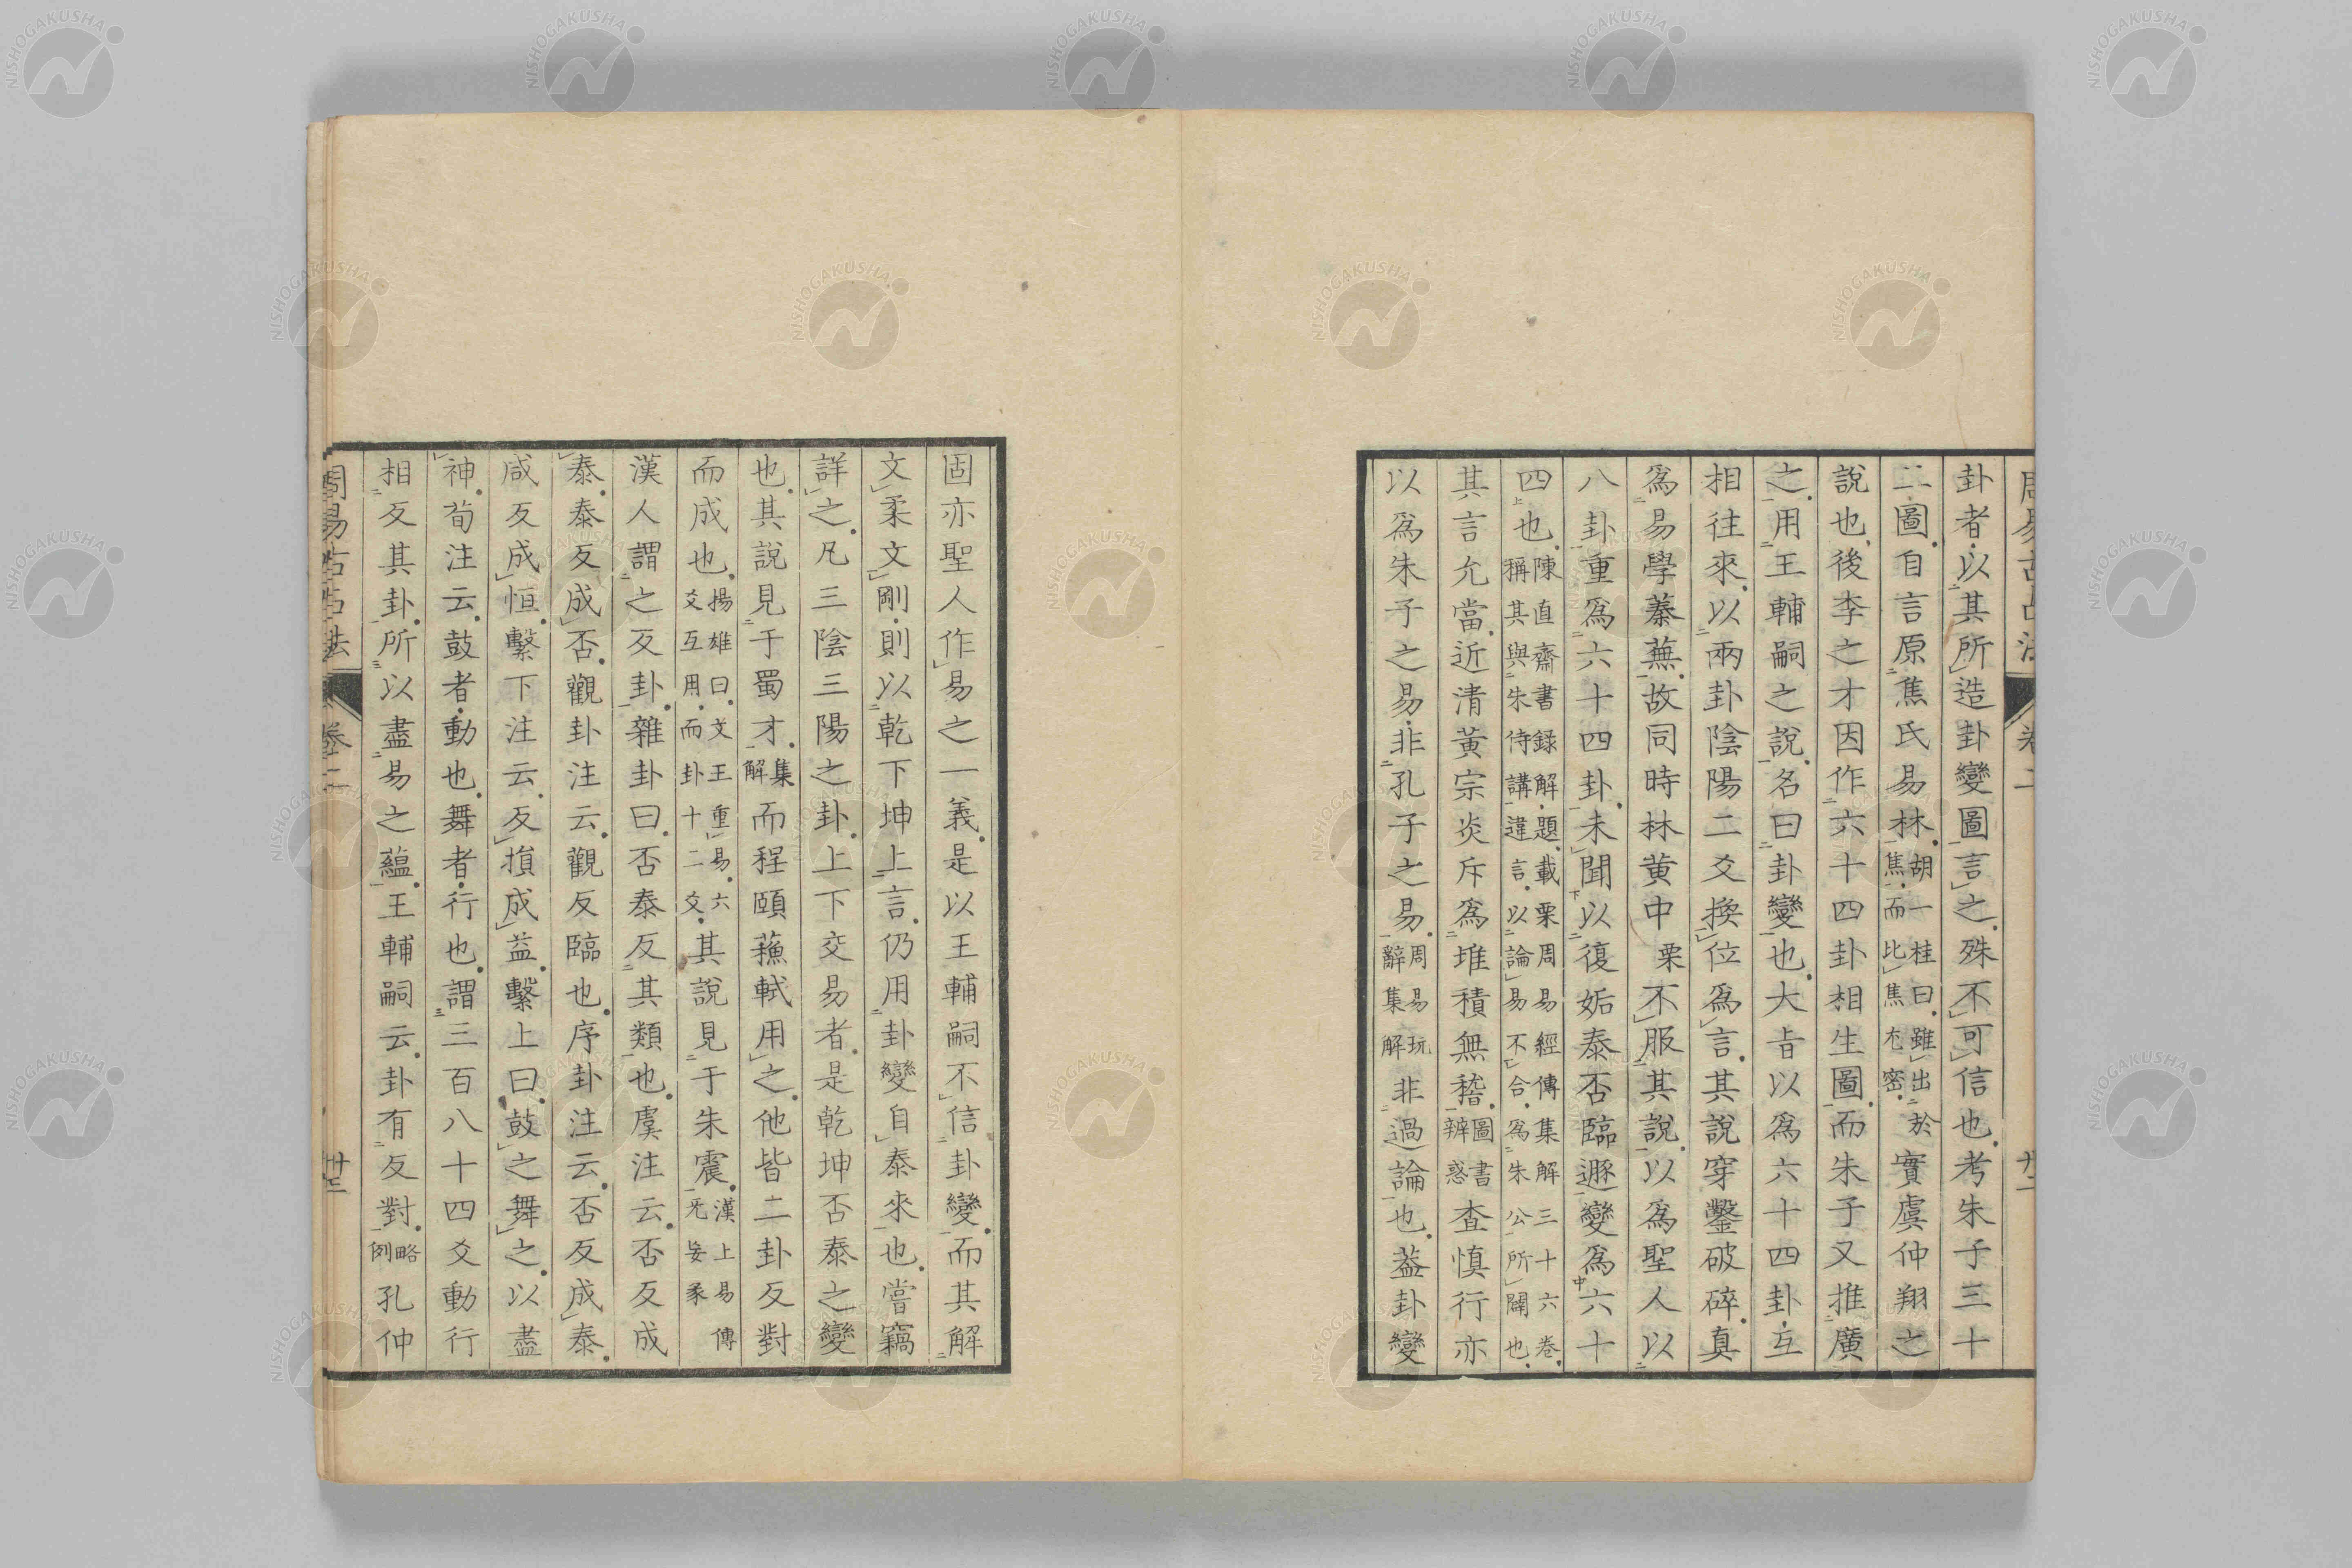 卦者以其所造卦變圖言之殊不可信也考朱子三十
二圖自言原焦氏易林胡一桂曰雖出於焦而比焦尤密實虞仲翔之
說也後李之才因作六十四卦相生圖而朱子又推廣
之用王輔嗣之說名曰卦變也大旨以爲六十四卦互
相往來以兩卦陰陽二爻換位爲言其說穿鑿破碎真
爲易學蓁蕪故同時林黃中栗不服其說以爲聖人以
八卦重爲六十四卦未聞以復姤泰否臨遯變爲六十
四也陳直齋書録解題載栗周易經傳集解三十六卷稱其與朱侍講違言以論易不合爲朱公所闢也
其言允當近清黃宗炎斥爲堆積無稽圖書辨惑査慎行亦
以爲朱子之易非孔子之易周易玩辭集解非過論也葢卦變
周易古占法 卷二 廿二
固亦聖人作易之一義是以王輔嗣不信卦變而其解
文柔文剛則以乾下坤上言仍用卦變自泰來也嘗竊
詳之凡三陰三陽之卦上下交易者是乾坤否泰之變
也其說見于蜀才集解而程頤蘓軾用之他皆二卦反對
而成也揚雄曰文王重易六爻互用而卦十二爻其說見于朱震漢上易傳无妄彖
漢人謂之反卦雜卦曰否泰反其類也虞注云否反成
泰泰反成否觀卦注云觀反臨也序卦注云否反成泰
咸反成恒繫下注云反損成益繫上曰鼓之舞之以盡
神荀注云鼓者動也舞者行也謂三百八十四爻動行
相反其卦所以盡易之蘊王輔嗣云卦有反對略例孔仲
周易古占法 卷二 廿三
NISHOGAKUSHA